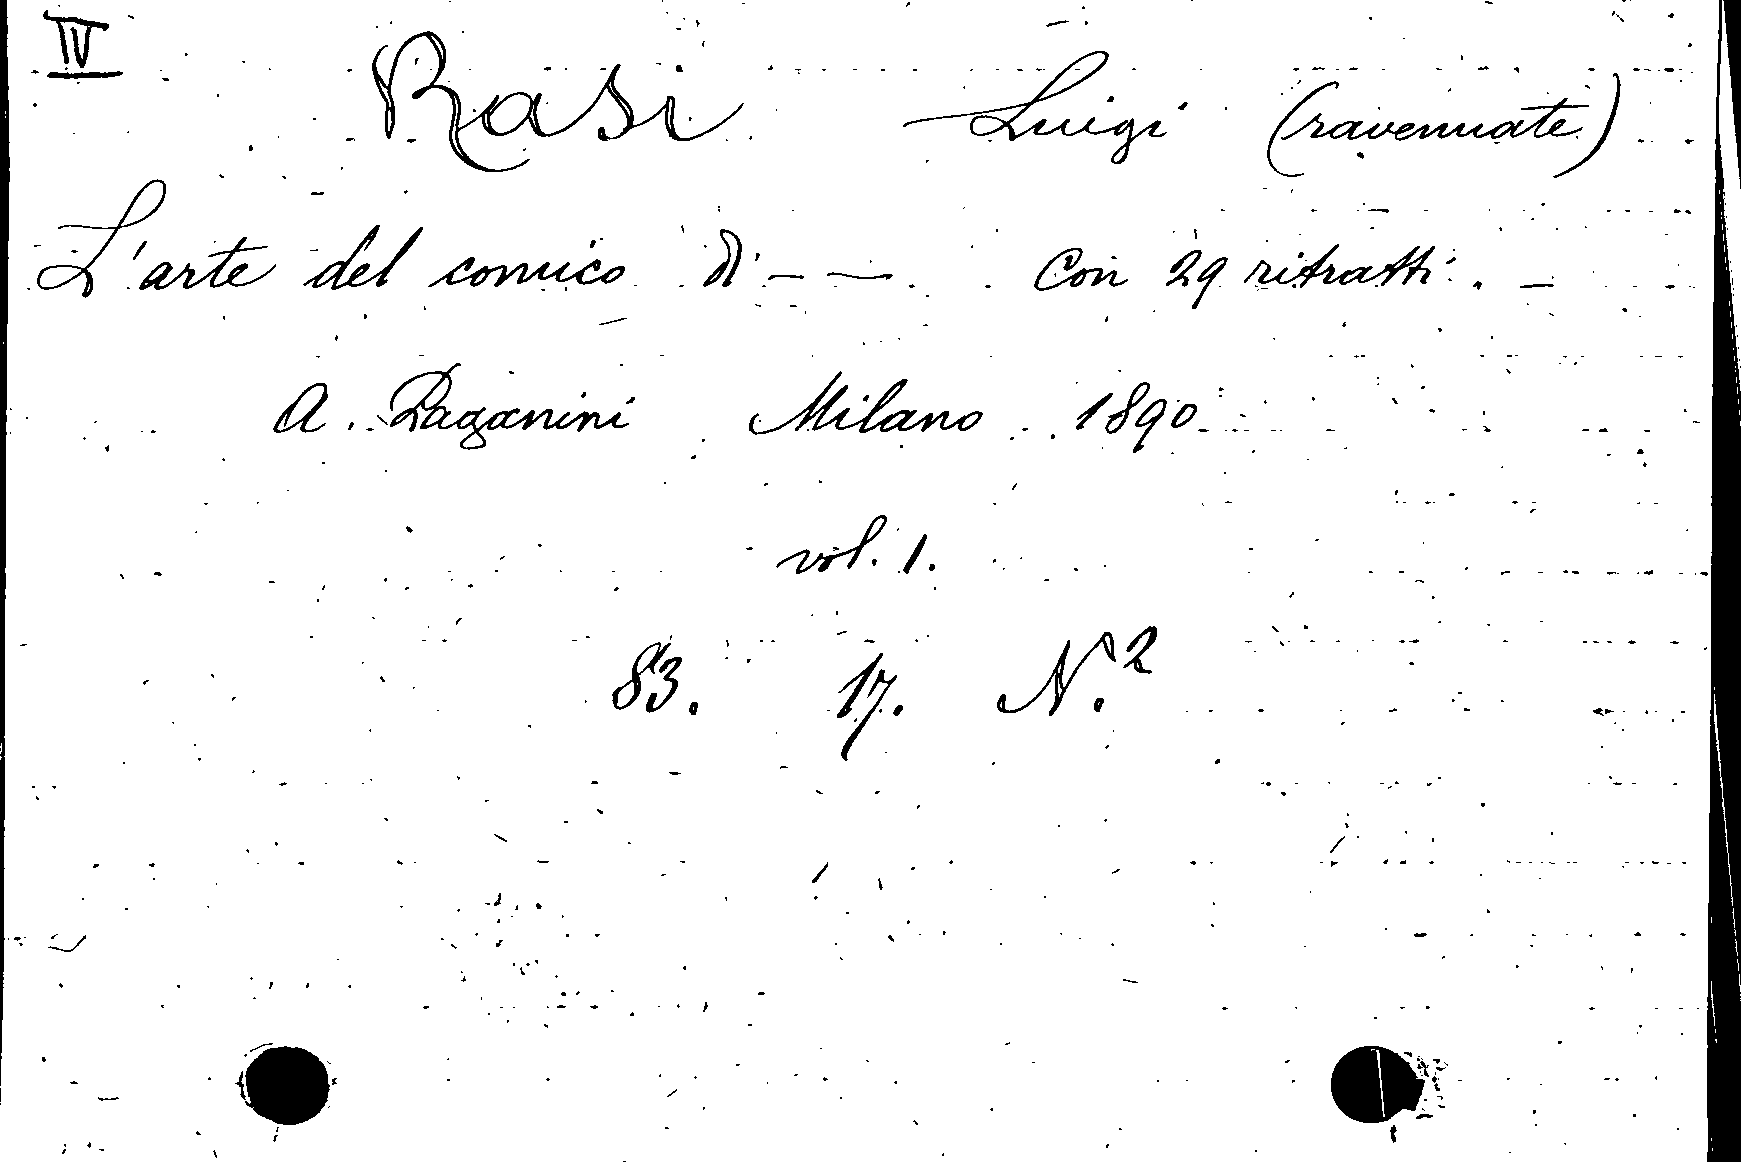 IV
Rasi Luigi (ravennate)
L'arte del comico di — — Con 29 ritratti. —
A. Paganini Milano 1890
vol. 1.
83. 17. N.2